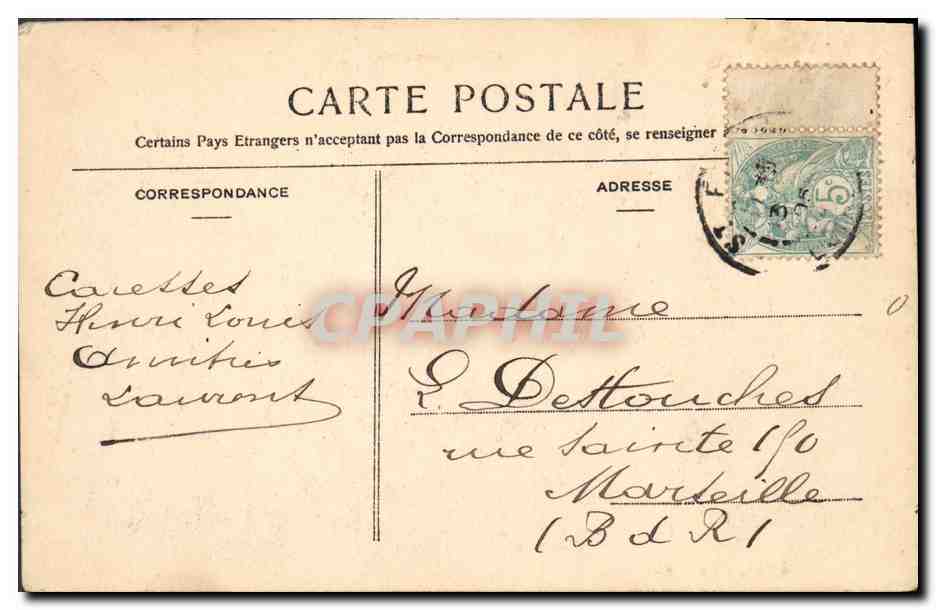 CARTE POSTALE
Certains Pays Etrangers n'acceptant pas la Correspondance de ce côté, se renseigner
CORRESPONDANCE
ADRESSE
Caresses
Henri Louis
Amitiés
Laurent
Madame
L. Desttouches
rue Sainte 150
Marseille
(B d R)
CPAPHIL
5c
ST F